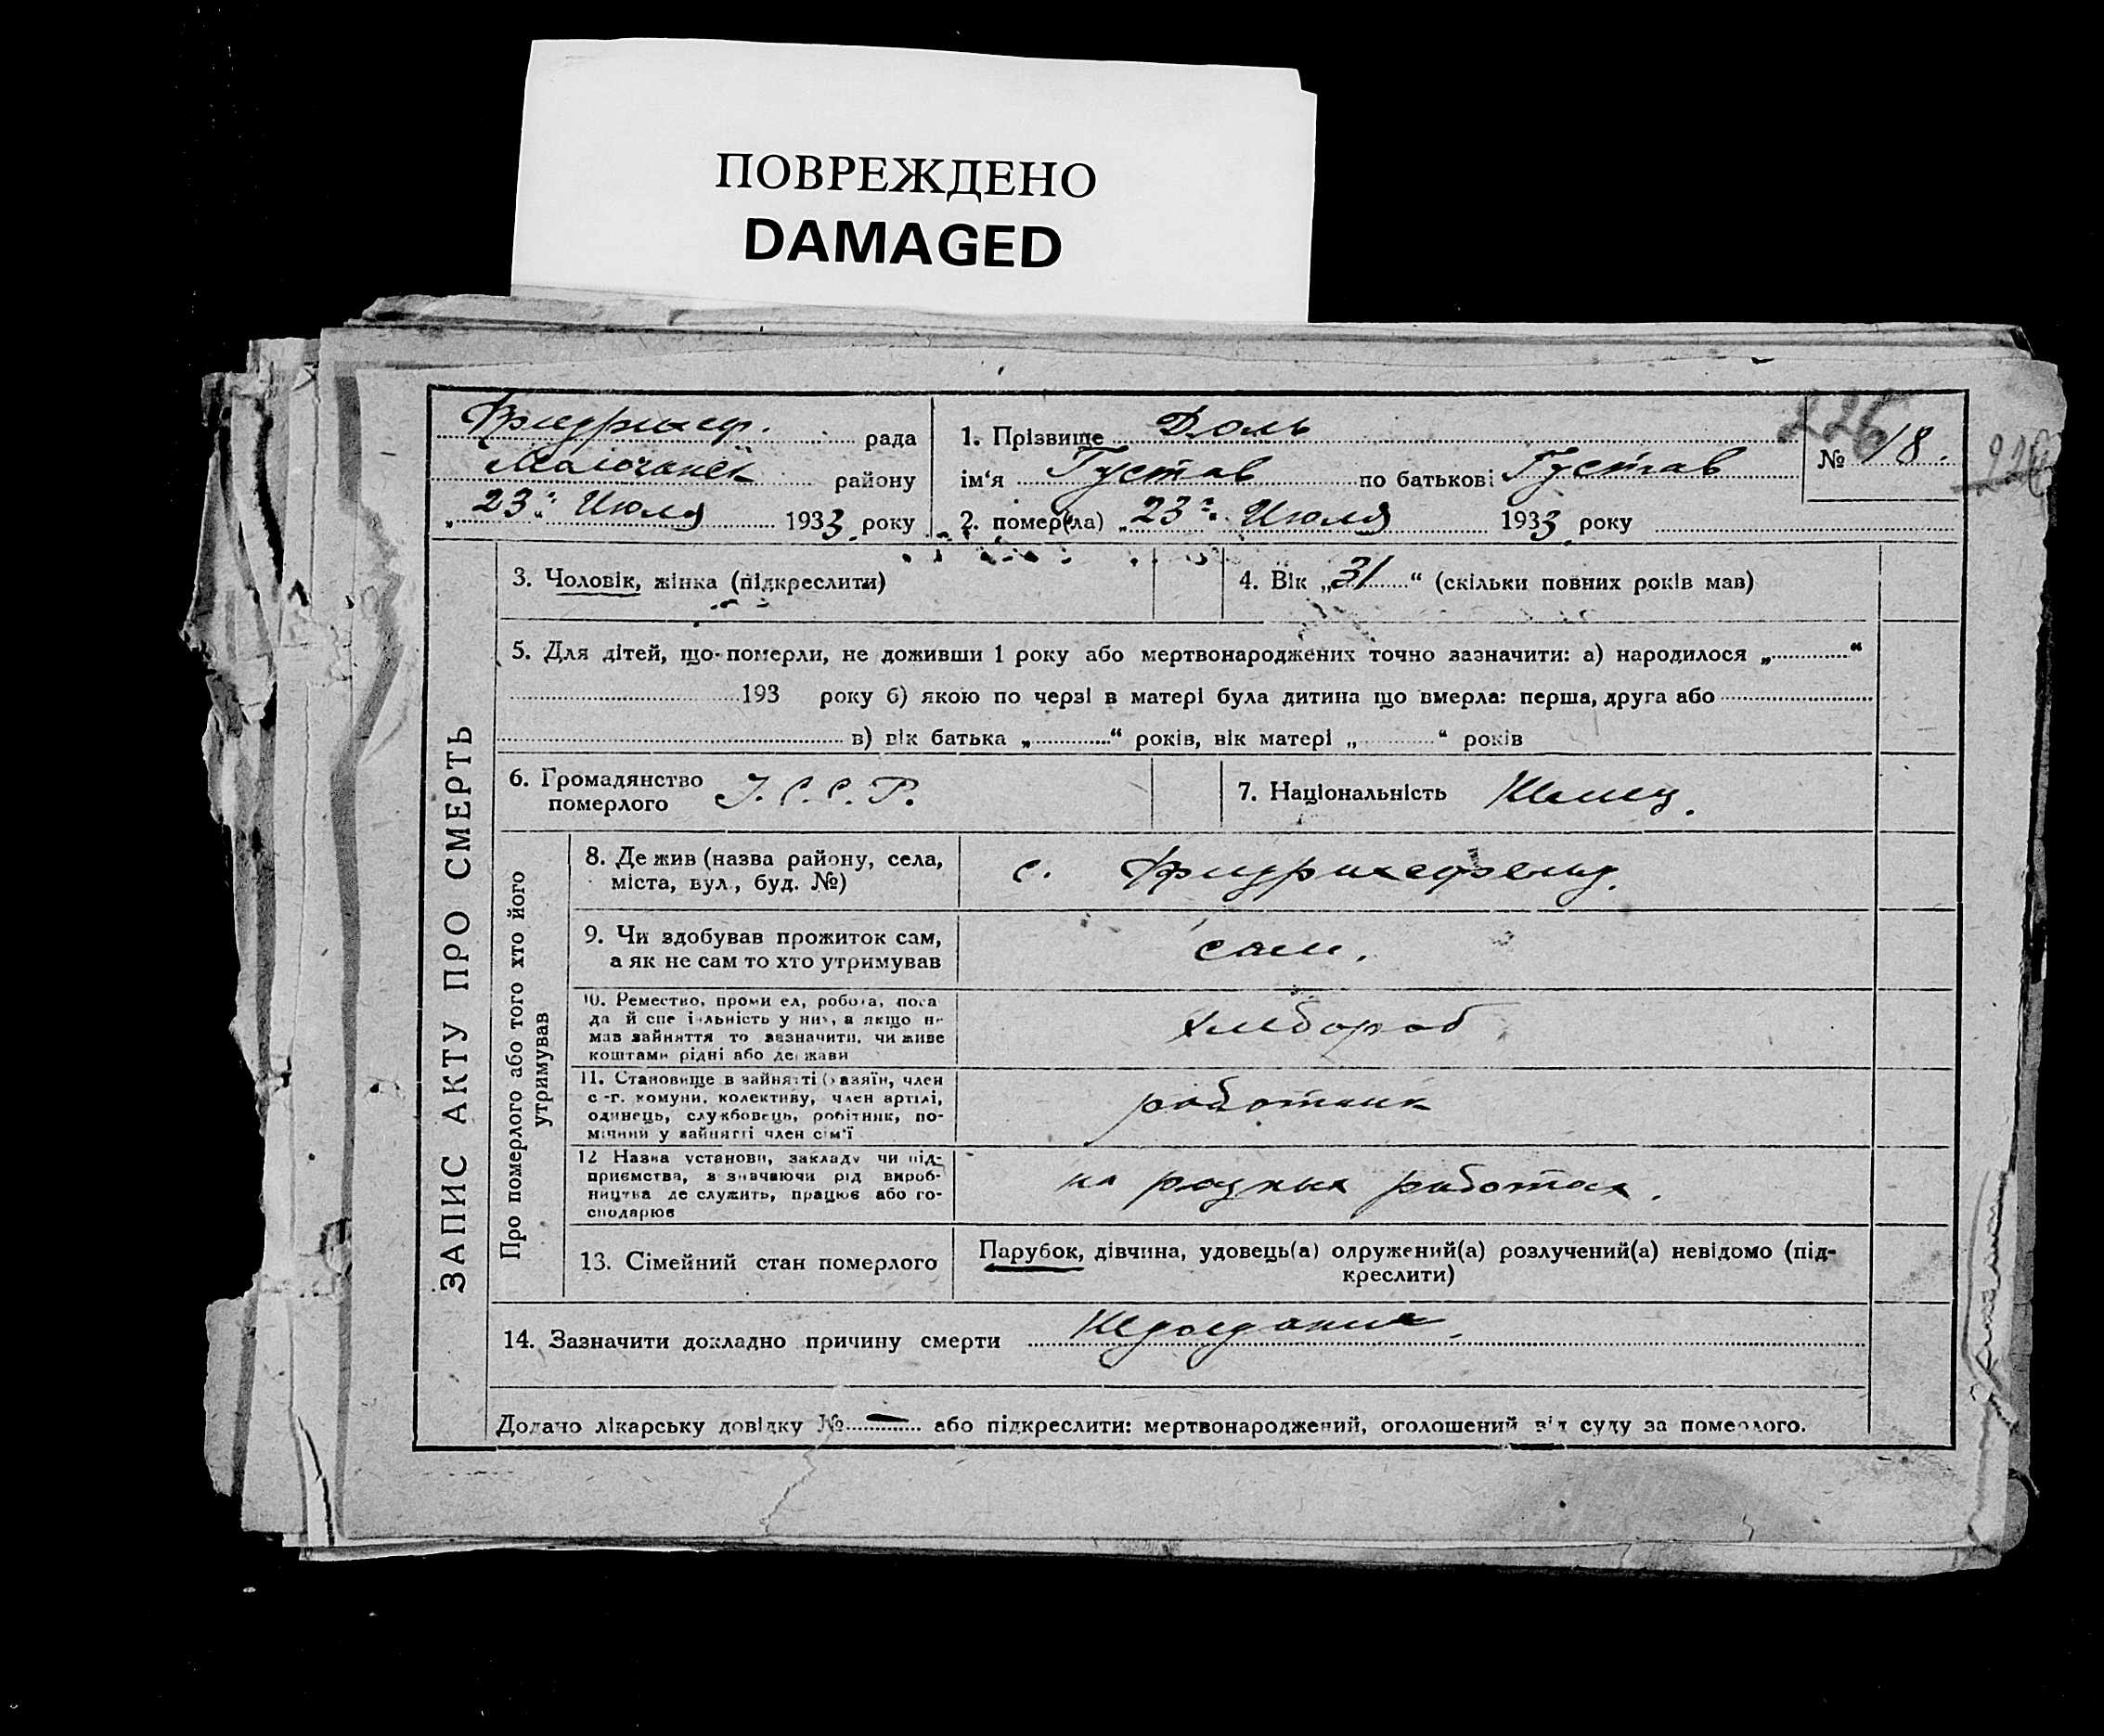 ПОВРЕЖДЕНО
DAMAGED
Фридрихсф. рада
района Молочанск району
„23" Июля 1933 року
1. Прізвище Доль
ім'я Густав по батькові Густав
2. помер(ла) „23" Июля 1933 року
226
№ 18.
226
ЗАПИС АКТУ ПРО СМЕРТЬ
3. Чоловік, жінка (підкреслити)
4. Вік „31" (скільки повних років мав)
5. Для дітей, що померли, не доживши 1 року або мертвонароджених точно зазначити: а) народилося „ "
193 року б) якою по черзі в матері була дитина що вмерла: перша, друга або
в) вік батька „ " років, вік матері „ " років
6. Громадянство
померлого У.С.С.Р.
7. Національність Немец.
Про померлого або того хто його
утримував
8. Де жив (назва району, села,
міста, вул., буд. №)
с. Фридрихсфельд.
9. Чи здобував прожиток сам,
а як не сам то хто утримував
сам.
10. Ремество, промисел, робота, поса
да й спеціяльність у ній, а якщо не
мав зайняття то зазначити, чи живе
коштами рідні або держави
хлебороб
11. Становище в зайнятті (хазяїн, член
с.-г. комуни, колективу, член артілі,
одинець, службовець, робітник, по-
мічний у зайнятті член сім'ї
работник
12 Назва установи, закладу чи під-
приємства, зазначаючи рід вироб-
ництва де служить, працює або го-
сподарює
на разных работах.
13. Сімейний стан померлого
Парубок, дівчина, удовець(а) одружений(а) розлучений(а) невідомо (під-
креслити)
14. Зазначити докладно причину смерти Недоедание.
Додано лікарську довідку № — або підкреслити: мертвонароджений, оголошений від суду за померлого.